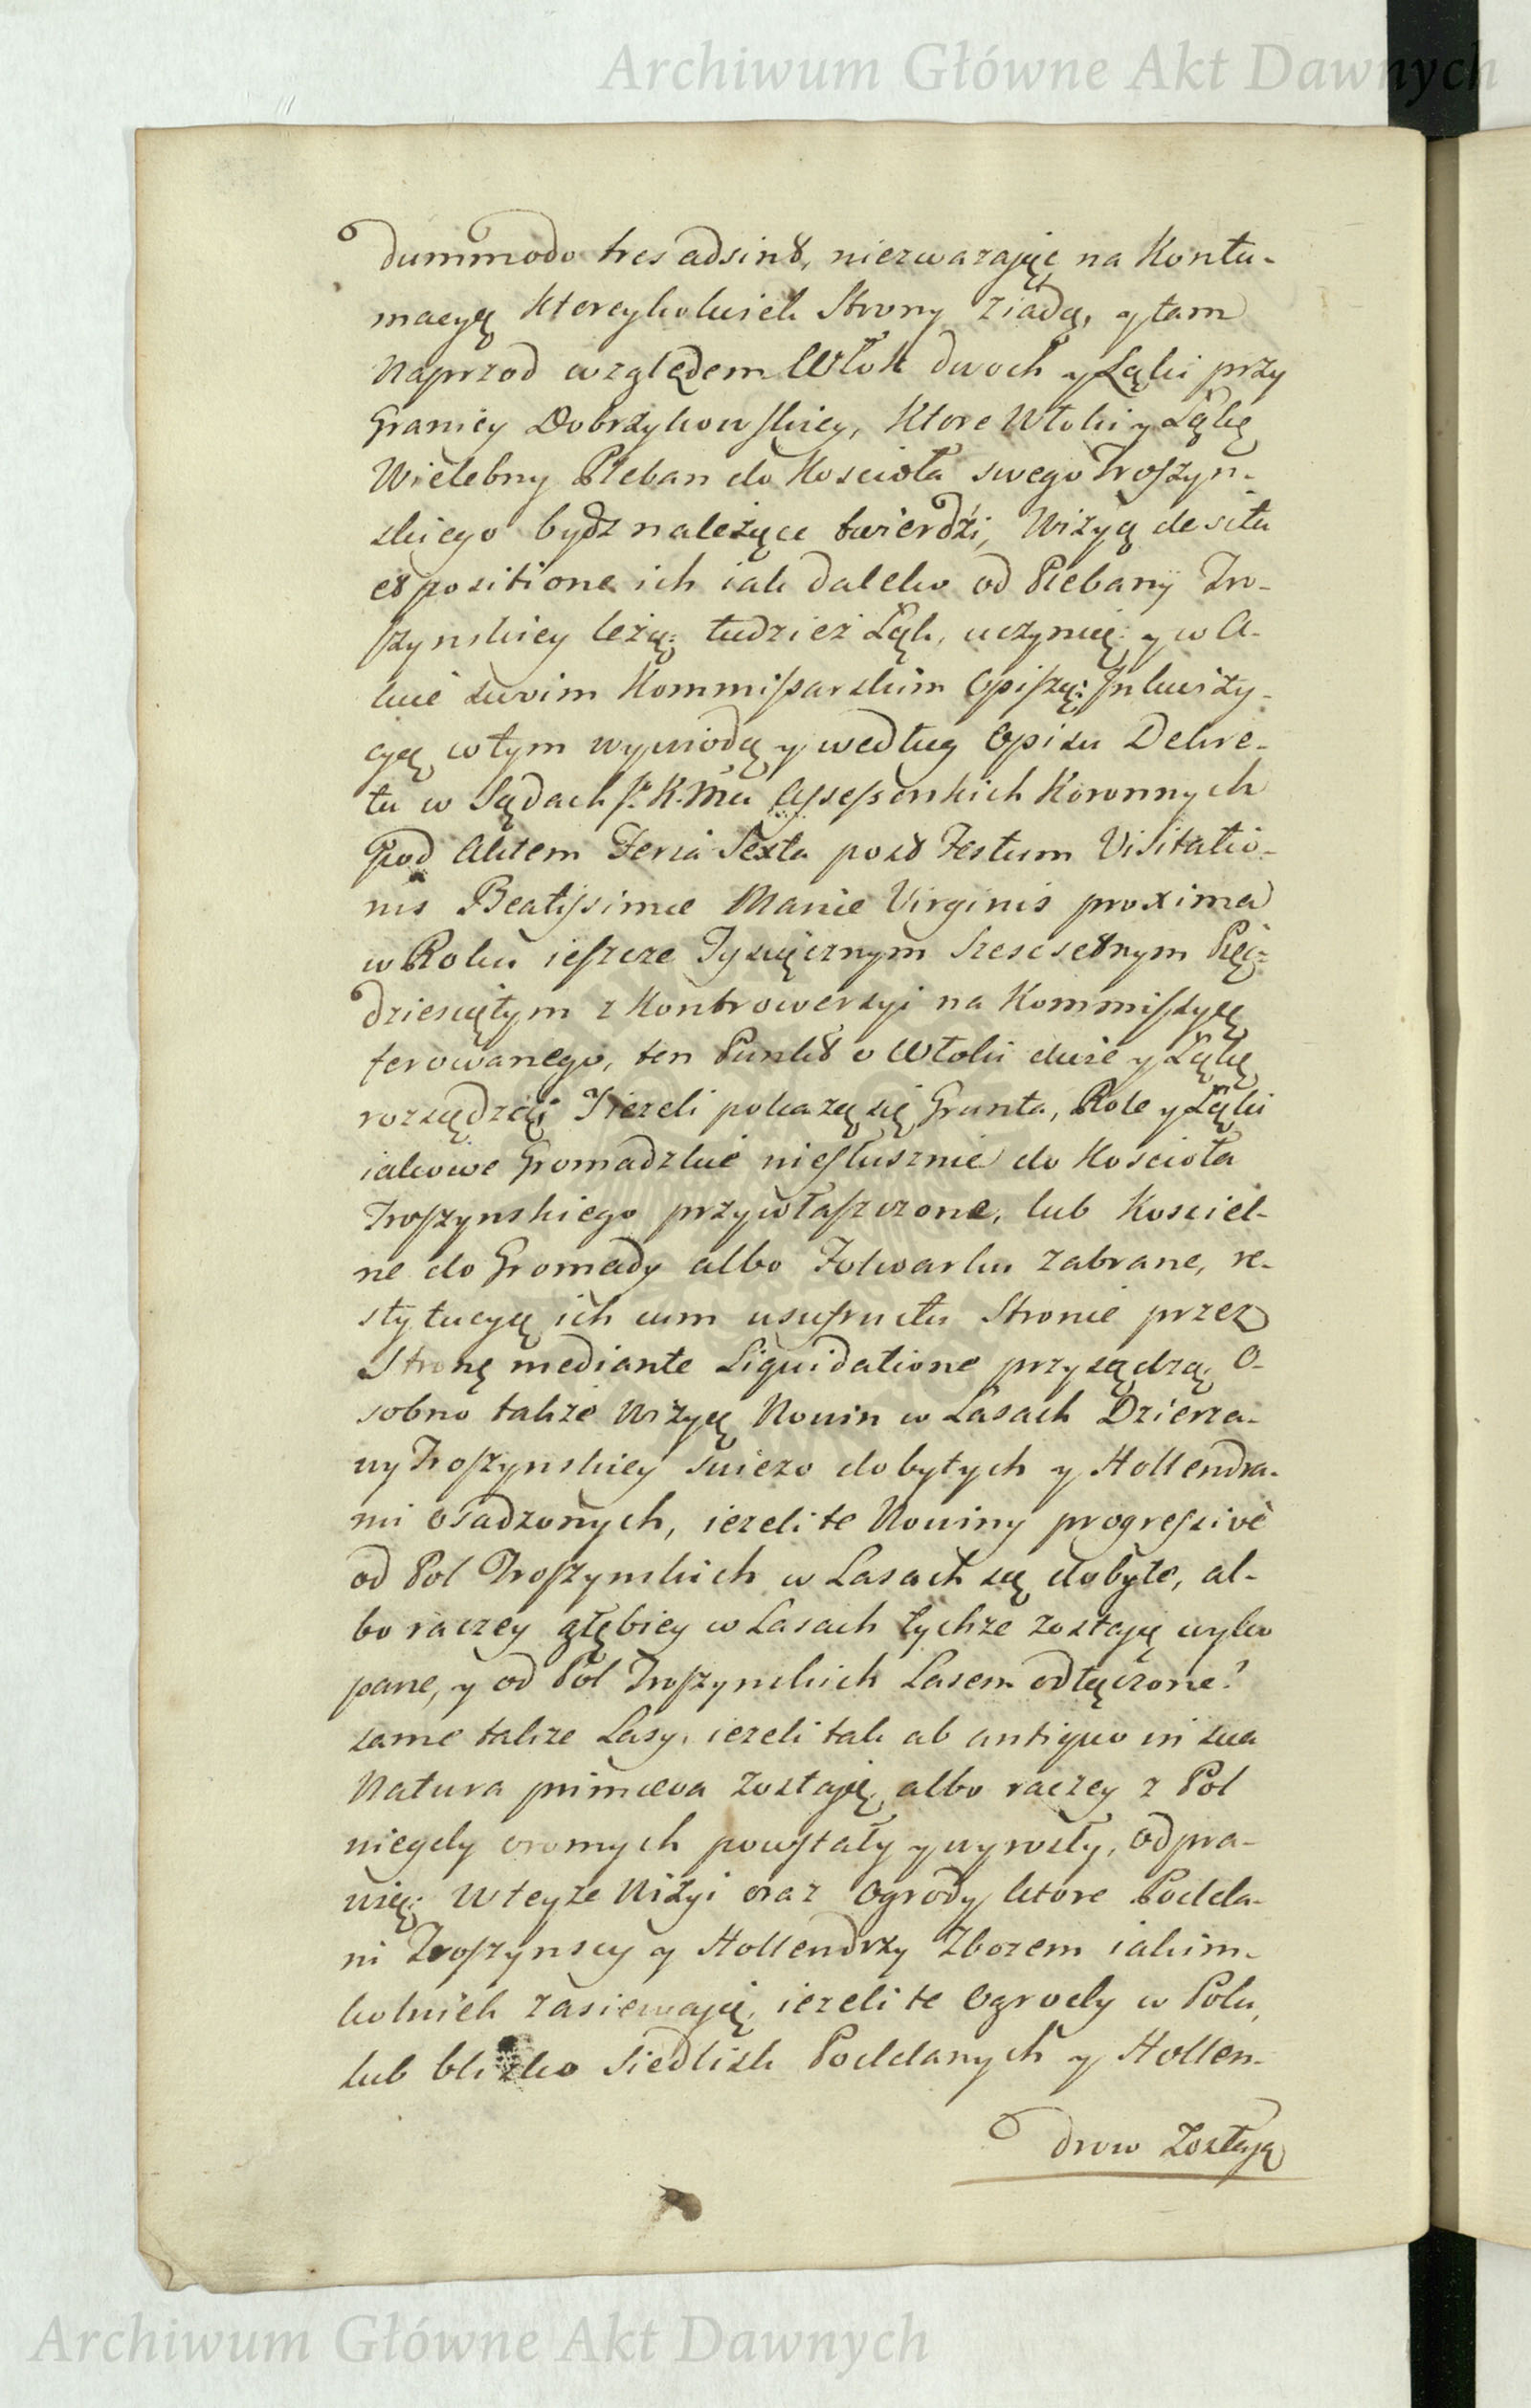 Archiwum Główne Akt Dawnych
dummodo tres adsint, niezwazaiąc na Kontu-
macyą ktoreykolwiek Strony ziadą, y tam
Naprzod względem Włok dwoch y Łąki przy
Granicy Dobrzykowskiey, Ktore Włoki y Łąkę
Wielebny Pleban do Kosciola swego Troszyn-
skiego bydz należące twierdzi, Wizyą de situ
et positione ich iak daleko od Plebanÿ Tro-
szynskiey leżą: tudzież Łąk, uczynią: y w A-
kcie swoim Kommissarskim Opiszą: Inkwizy-
cyą w tym wywiodą y według Opisu Dekre-
tu w Sądach J. K. Mci Assessorskich Koronnych
Pod Aktem Feria Sexta post Festum Visitatio-
nis Beatissimæ Mariæ Virginis proxima
w Roku ieszcze Tysiącznym Szescsetnym Pięć-
dziesiątym z Kontrowersyi na Kommissyą
ferowanego, ten Punkt o Włoki dwie y Łąkę
rozsądzą; Jieżeli pokażą się Grunta, Role y Łąki
iakowe Gromadzkie niesłusznie do Kościoła
Troszynskiego przywłaszczone, lub Kosciel-
ne do Gromady albo Folwarku zabrane, re-
stytucyą ich cum usufructu Stronie przez
Stronę mediante Liquidatione przysądzą; O-
sobno także Wizyą Nowin w Lasach Dzierża-
wy Troszynskiey świeżo dobytych y Hollendra-
mi osadzonych, ieżeli te Nowiny progressivè
od Pol Troszynskich w Lasach są dobyte, al-
bo raczey głębiey w Lasach tychże zostają wyko
pane, y od Pol Troszynskich Lasem odłączone?
same także Lasy, ieżeli tak ab antiquo in sua
Natura primæva zostają, albo raczey z Pol
niegdy oromych powstały y wyrosły, odpra-
wią; W teyże Wizyi oraz Ogrody, ktore Podda-
ni Troszynscy y Hollendrzy Zbożem iakim-
kolwiek zasiewają, ieżeli te Ogrody w Polu,
lub blizko Siedlisk Poddanych y Hollen-
drow Zostają
Archiwum Główne Akt Dawnych